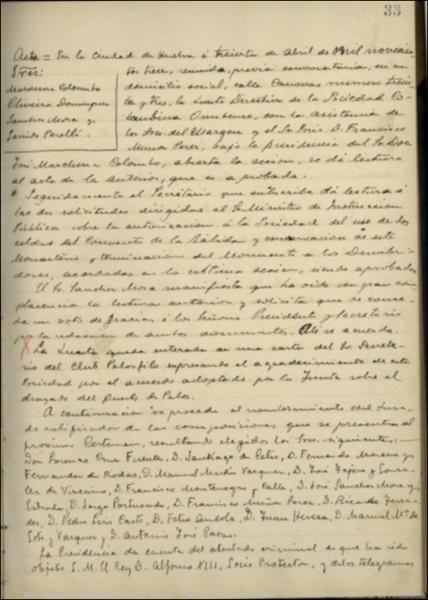 33
Acta = En la ciudad de Huelva á treinta de Abril de mil novecien-
Sres:
Marchena Colombo
Oliveira Domínguez
Sánchez Mora y
Garrido Perelló.
tos trece, reunida, previa convocatoria, en su
domicilio social, calle Canovas número treinta
y tres, la Junta Directiva de la Sociedad Co-
lombina Onubense, con la asistencia de
los Sres. del Margen y el Sr. Socio D. Francisco
Muñoz Perez, bajo la presidencia del Sr. Don
José Marchena Colombo, abierta la sesion, se dá lectura
al acta de la anterior, que es aprobada.
Seguidamente el Secretario que suscribe dá lectura á
las dos solicitudes dirigidas al Sr. Ministro de Instruccion
Pública sobre la autorizacion á la Sociedad del uso de dos
celdas del Convento de la Rábida y conservacion de este
Monasterio y terminacion del Monumento a los Descubri-
dores, acordadas en la última sesion, siendo aprobadas.
El Sr. Sanchez Mora manifiesta que ha oido con gran com-
placencia la lectura anterior y solicita que se conce-
da un voto de gracias á los Señores Presidente y Secretario
por la redaccion de ambos documentos. Así se acuerda.
La Junta queda enterada de una carta del Sr. Secreta-
rio del Club Palósfilo expresando el agradecimiento de esta
Sociedad por el acuerdo adoptado por la Junta sobre el
dragado del Puerto de Palos.
A continuacion se procede al nombramiento del Jura-
do calificador de las composiciones que se presenten al
próximo Certamen, resultando elegidos los Sres. siguientes:
Don Lorenzo Cruz Fuentes, D. Santiago de Celis, D. Fernando Moreno y
Fernandez de Rodas, D. Manuel Martin Vazquez, D. José Tejero y Gonza-
lez de Vizcaino, D. Francisco Montenegro y Calle, D. José Sanchez Mora y
Estrada, D. Jorge Portuondo, D. Francisco Muñoz Perez, D. Ricardo Terra-
des, D. Pedro Luis Casto, D. Felix Andolz, D. Juan Heresa, D. Manuel Mª de
Soto y Vazquez y D. Antonio José Paero.
La Presidencia da cuenta del atentado criminal de que ha sido
objeto S. M. el Rey D. Alfonso XIII, Socio Protector, y de los telegramas